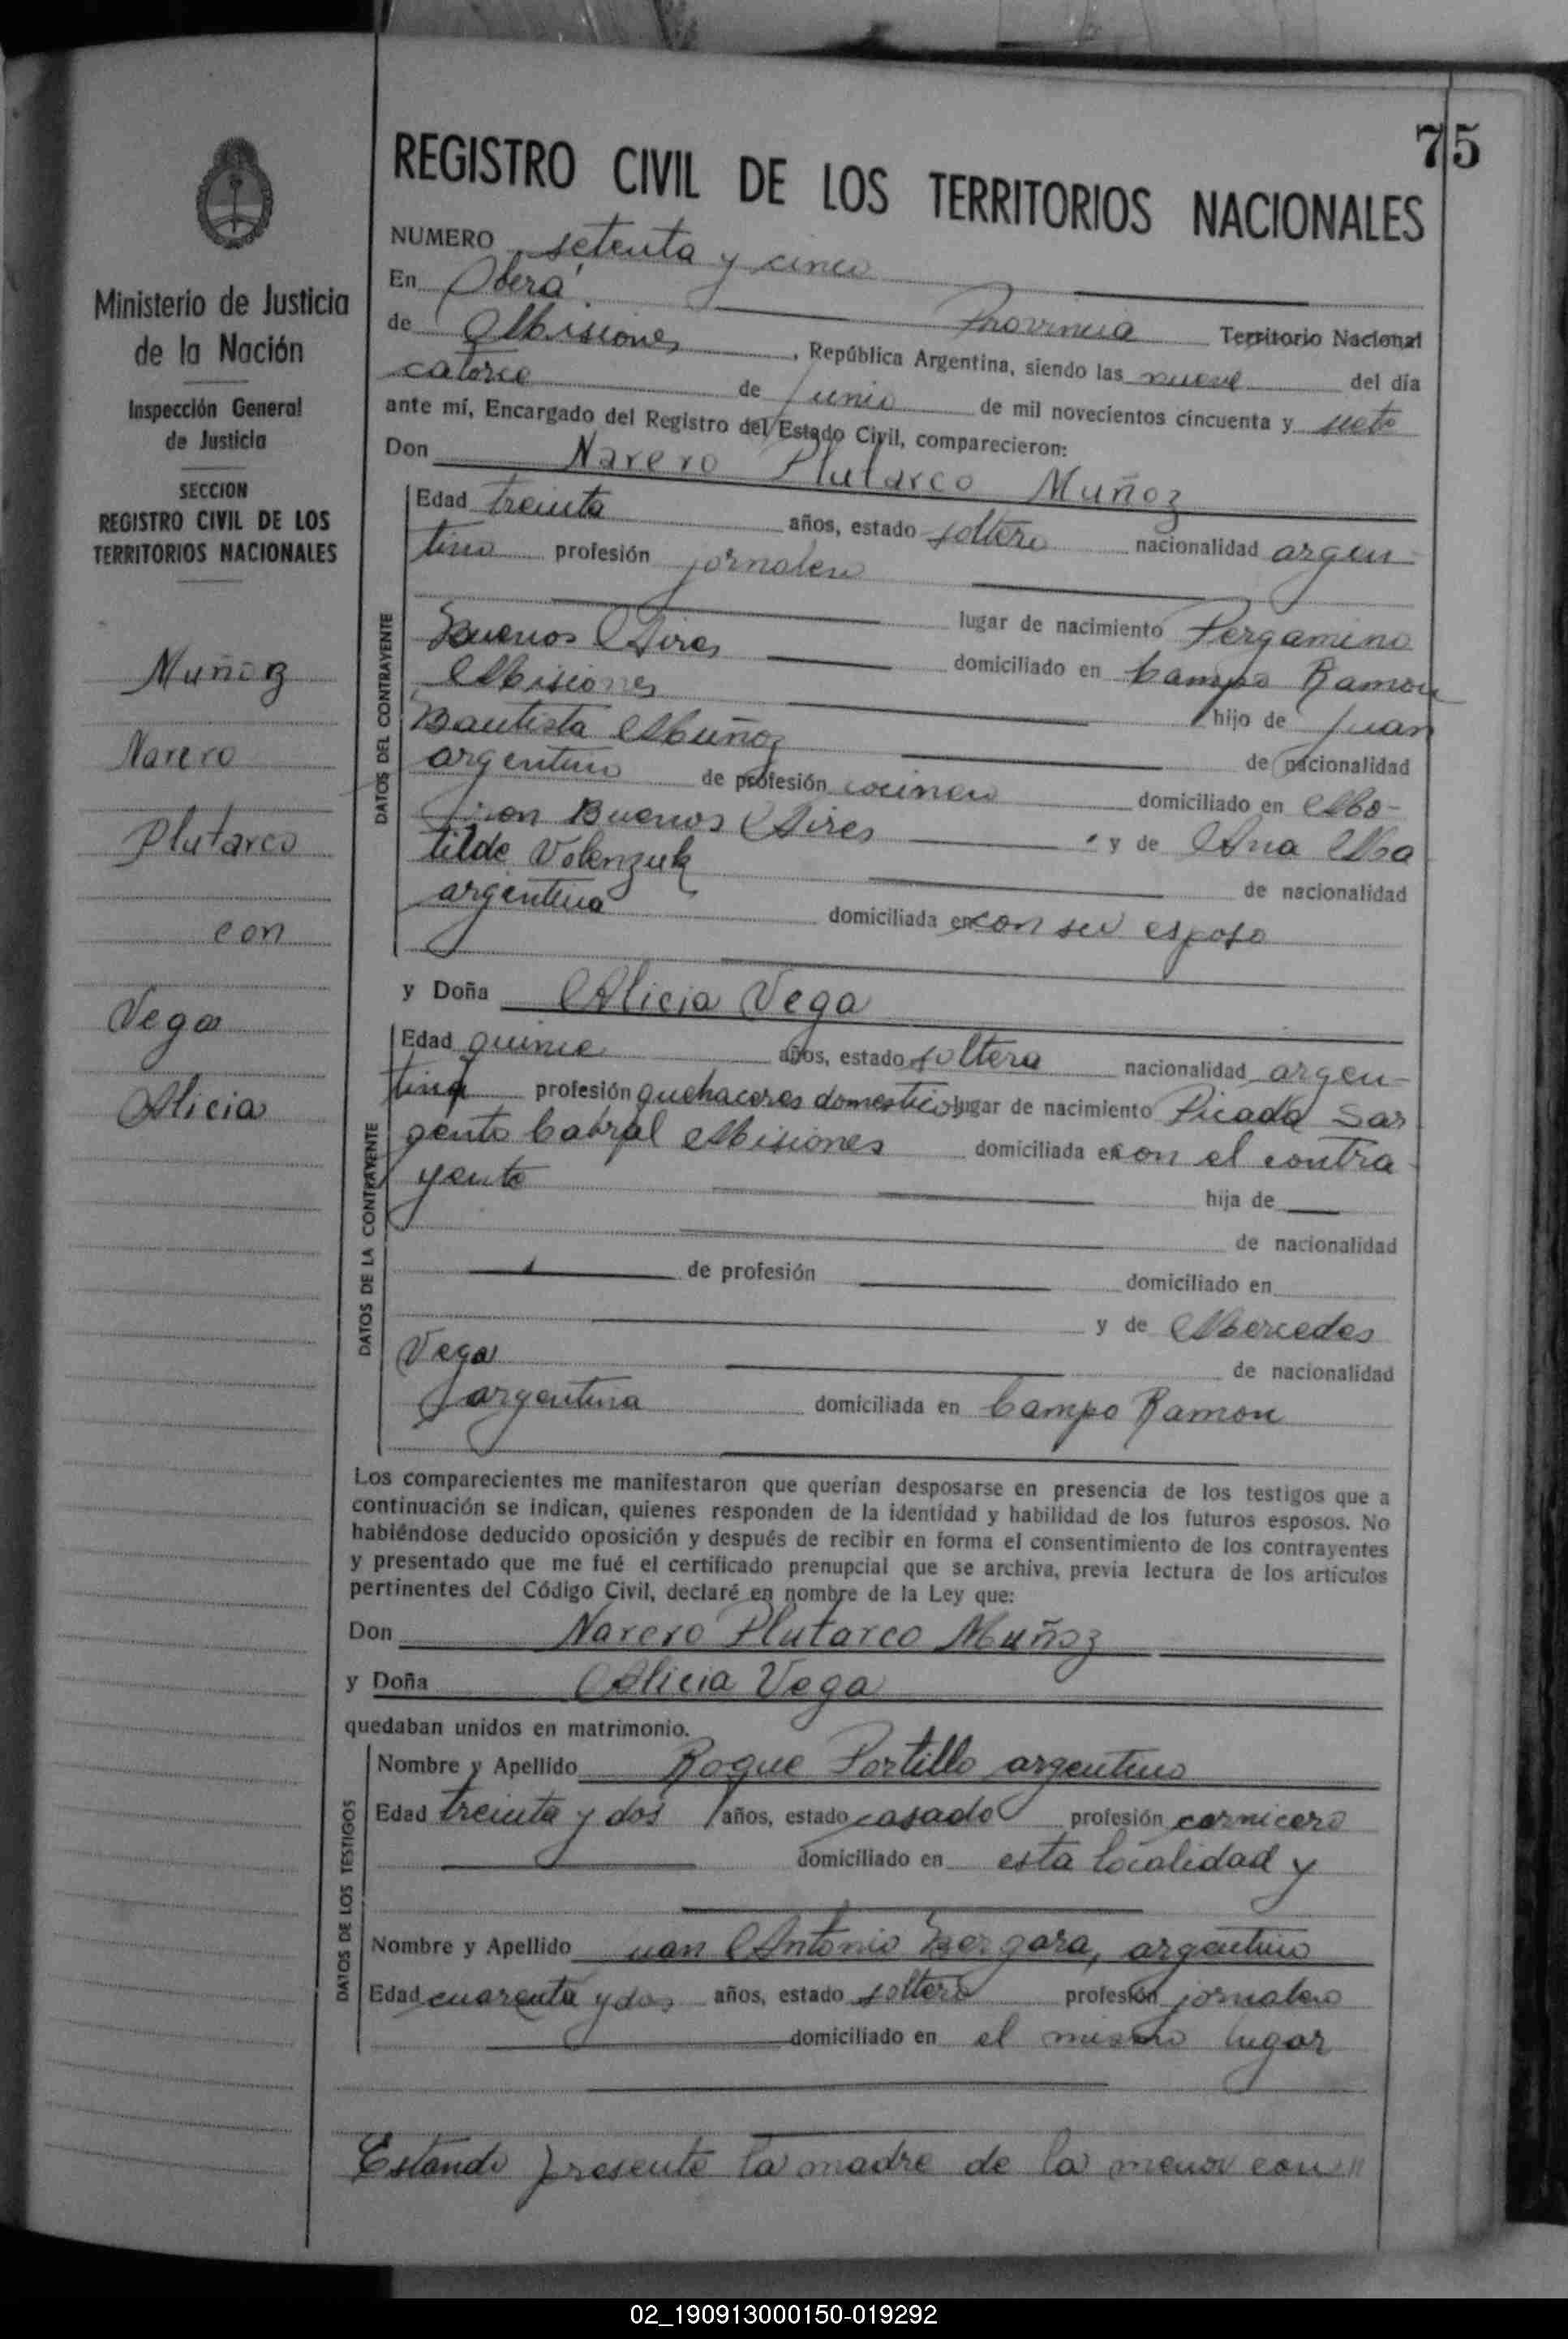 75
REGISTRO CIVIL DE LOS TERRITORIOS NACIONALES
Ministerio de Justicia
de la Nación
Inspección General
de Justicia
SECCION
REGISTRO CIVIL DE LOS
TERRITORIOS NACIONALES
Muñoz
Narero
Plutarco
con
Vega
Alicia
NUMERO setenta y cinco
En Oberá
Provincia Territorio Nacional
de Misiones, República Argentina, siendo las nueve del día
catorce de Junio de mil novecientos cincuenta y siete
ante mí, Encargado del Registro del Estado Civil, comparecieron:
Don Narero Plutarco Muñoz
DATOS DEL CONTRAYENTE
Edad treinta años, estado soltero nacionalidad argen-
tino profesión jornalero
lugar de nacimiento Pergamino
Buenos Aires domiciliado en Campo Ramon
Misiones hijo de Juan
Bautista Muñoz de nacionalidad
argentino de profesión cocinero domiciliado en Mo-
Buenos Aires y de Ana Ma
tilde Valenzuela de nacionalidad
argentina domiciliada en con su esposo
y Doña Alicia Vega
DATOS DE LA CONTRAYENTE
Edad quince años, estado soltera nacionalidad argen-
tina profesión quehaceres domesticos lugar de nacimiento Picada Sar
gento Cabral Misiones domiciliada en con el contra
yente hija de
de nacionalidad
de profesión domiciliado en
y de Mercedes
Vega de nacionalidad
argentina domiciliada en Campo Ramon
Los comparecientes me manifestaron que querían desposarse en presencia de los testigos que a
continuación se indican, quienes responden de la identidad y habilidad de los futuros esposos. No
habiéndose deducido oposición y después de recibir en forma el consentimiento de los contrayentes
y presentado que me fué el certificado prenupcial que se archiva, previa lectura de los artículos
pertinentes del Código Civil, declaré en nombre de la Ley que:
Don Narero Plutarco Muñoz
y Doña Alicia Vega
quedaban unidos en matrimonio.
DATOS DE LOS TESTIGOS
Nombre y Apellido Roque Portillo argentino
Edad treinta y dos años, estado casado profesión carnicero
domiciliado en esta localidad y
Nombre y Apellido Juan Antonio Bergara, argentino
Edad cuarenta y dos años, estado soltero profesión jornalero
domiciliado en el mismo lugar
Estando presente la madre de la menor con//
02_190913000150-019292